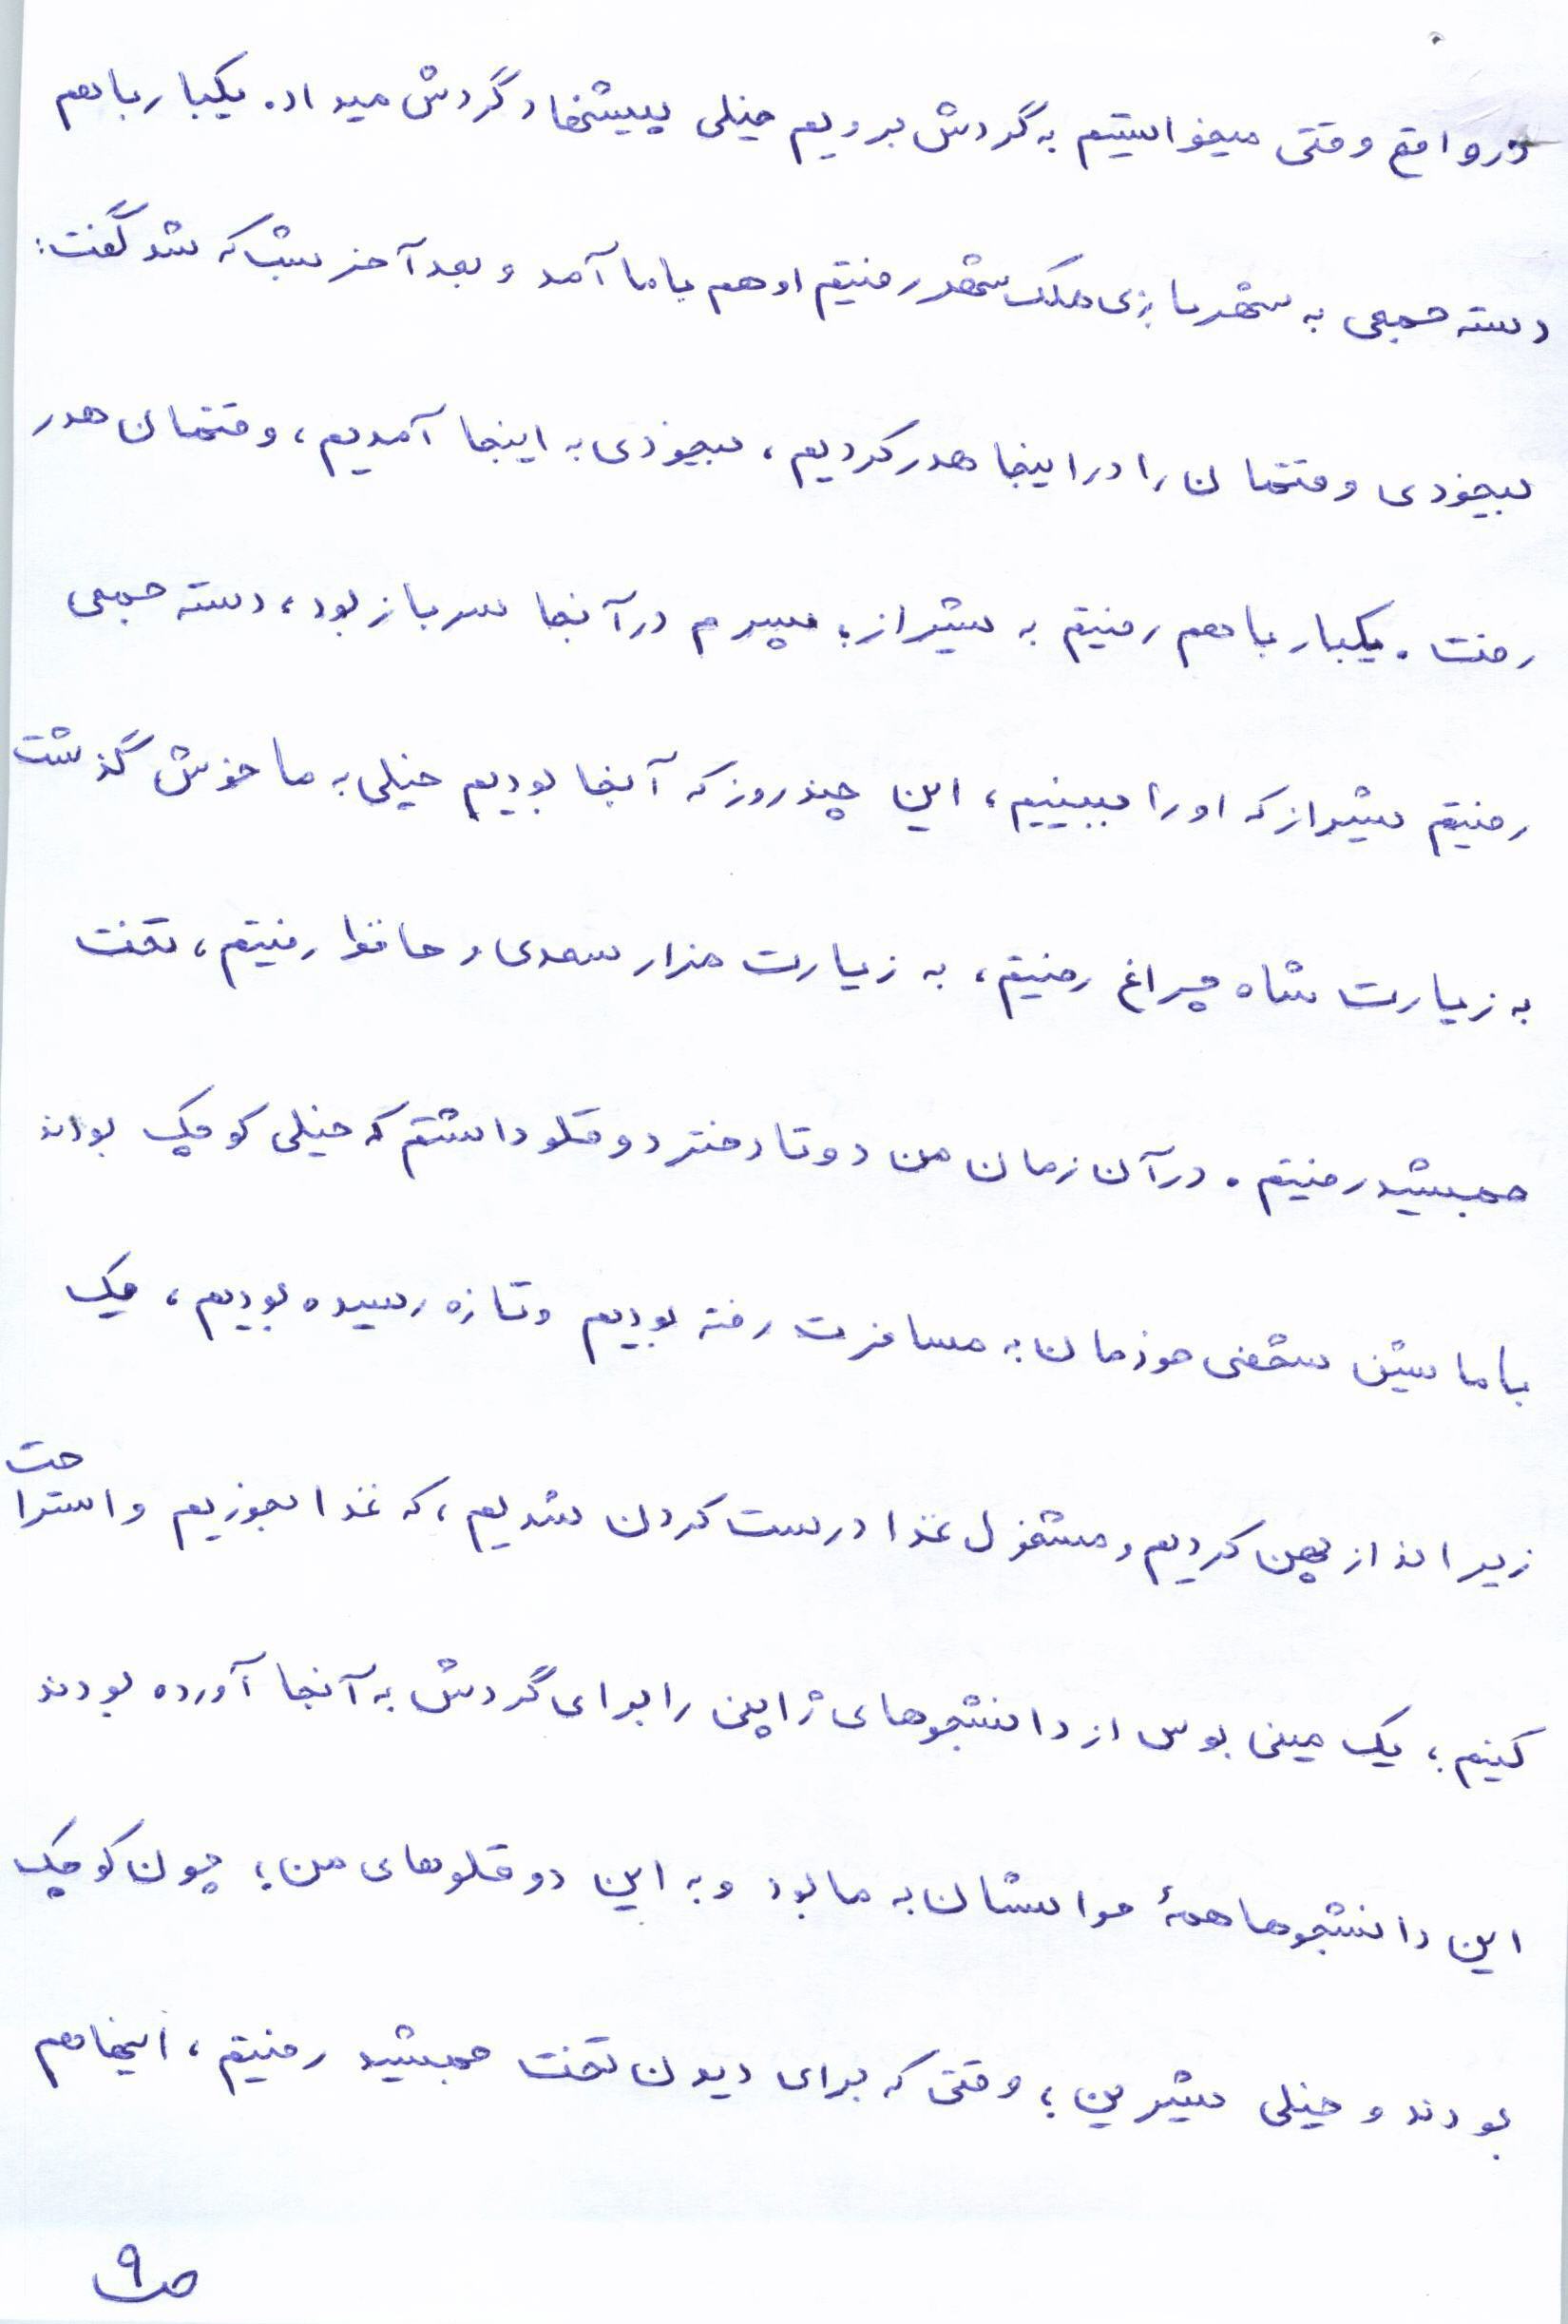 در واقع وقتی میخواستیم به گردش برویم خیلی پیشنهاد گردش میداد. یکبار باهم
دسته جمعی به شهر بازی ملک شهر رفتیم او هم با ما آمد و بعد آخر شب که شد گفت:
بیخودی وقتمان را در اینجا هدر کردیم، بیخودی به اینجا آمدیم، وقتمان هدر
رفت. یکبار با هم رفتیم به شیراز؛ پسرم در آنجا سرباز بود، دسته جمعی
رفتیم شیراز که او را ببینیم، این چند روز که آنجا بودیم خیلی به ما خوش گذشت
به زیارت شاه چراغ رفتیم، به زیارت مزار سعدی و حافظ رفتیم، تخت
جمشید رفتیم. در آن زمان من دو تا دختر دوقلو داشتم که خیلی کوچک بودند
با ماشین شخصی خودمان به مسافرت رفته بودیم و تازه رسیده بودیم، یک
زیرانداز پهن کردیم و مشغول غذا درست کردن شدیم، که غذا بخوریم و استراحت
کنیم؛ یک مینی بوس از دانشجوهای ژاپنی را برای گردش به آنجا آورده بودند
این دانشجوها همهٔ حواسشان به ما بود و به این دوقلوهای من؛ چون کوچک
بودند و خیلی شیرین؛ وقتی که برای دیدن تخت جمشید رفتیم، اینها هم
ص۹